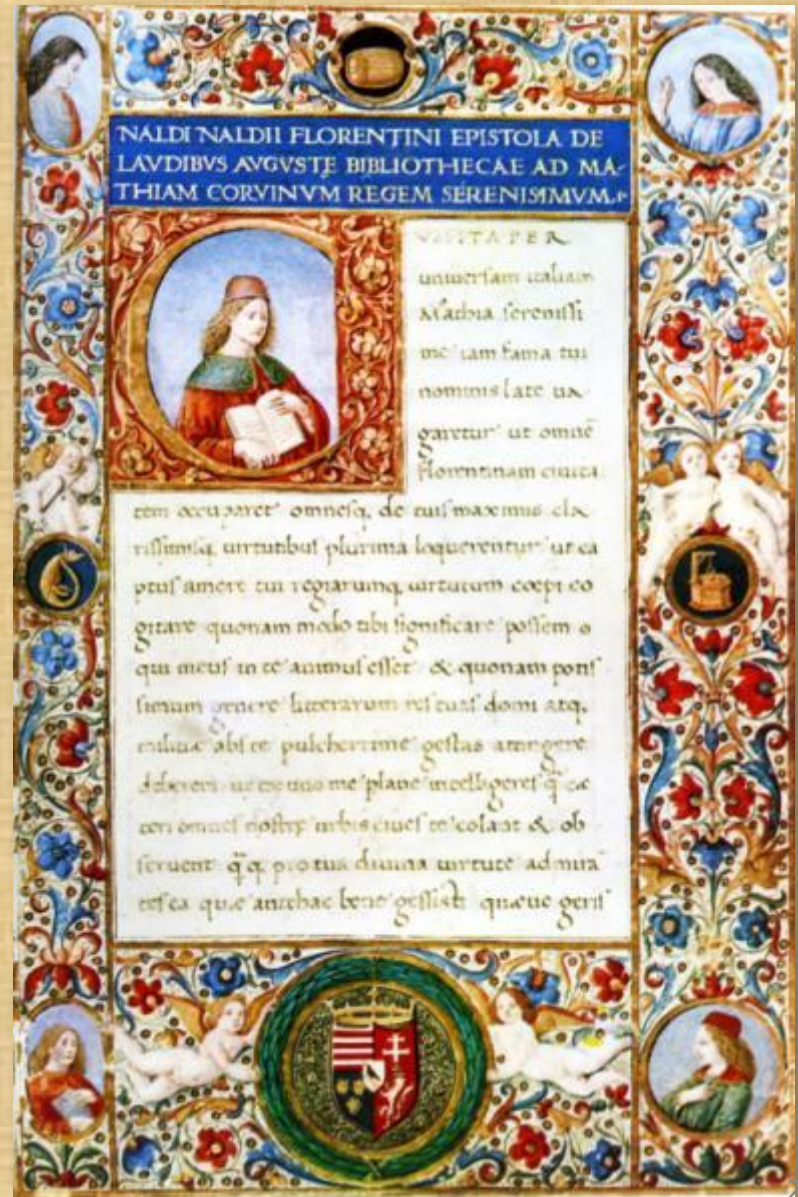 NALDI NALDII FLORENTINI EPISTOLA DE
LAVDIBVS AVGVSTĘ BIBLIOTHECAE AD MA-
THIAM CORVINVM REGEM SERENISIMVM.
VSITA PER
universam italiam
Mathia serenissi
me iam fama tui
nominis late va
garetur ut omnē
florentinam civita
tem occuparet omnesq. de tuis maximis cla
rissimisq. virtutibus plurima loquerentur ut ca
ptus amore tui regiarumq. virtutum coepi co
gitare quonam modo tibi significare possem
qui meus in te animus esset & quonam potis
simum genere litterarum res tuas domi atq.
militiæ abs te pulcherrime gestas attingere
deberem me plane intelligeres q̄ cæ
teri omnes nostrę urbis cives te colant & ob
servent q̄q. pro tua divina virtute admira
ca quæ antehac bene gessisti quæve geris